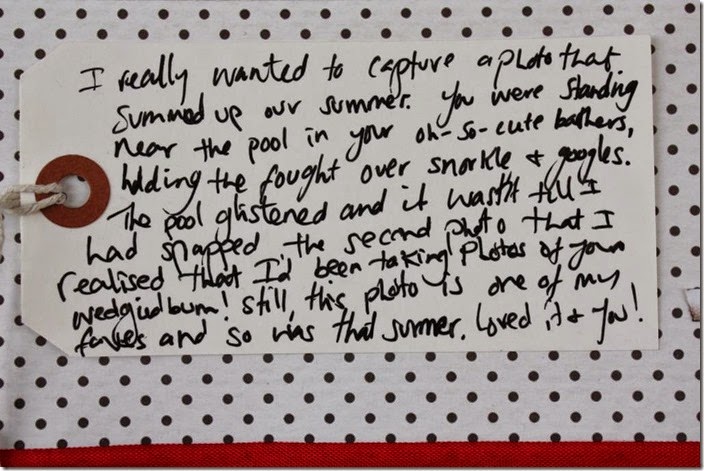 I really wanted to capture a photo that
summed up our summer. You were standing
near the pool in your oh-so-cute bathers,
holding the fought over snorkle & googles.
The pool glistened and it wasn't till I
had snapped the second photo that I
realised that I'd been taking photos of your
wedgiedbum! Still, this photo is one of my
faves and so was that summer. Loved it & you!